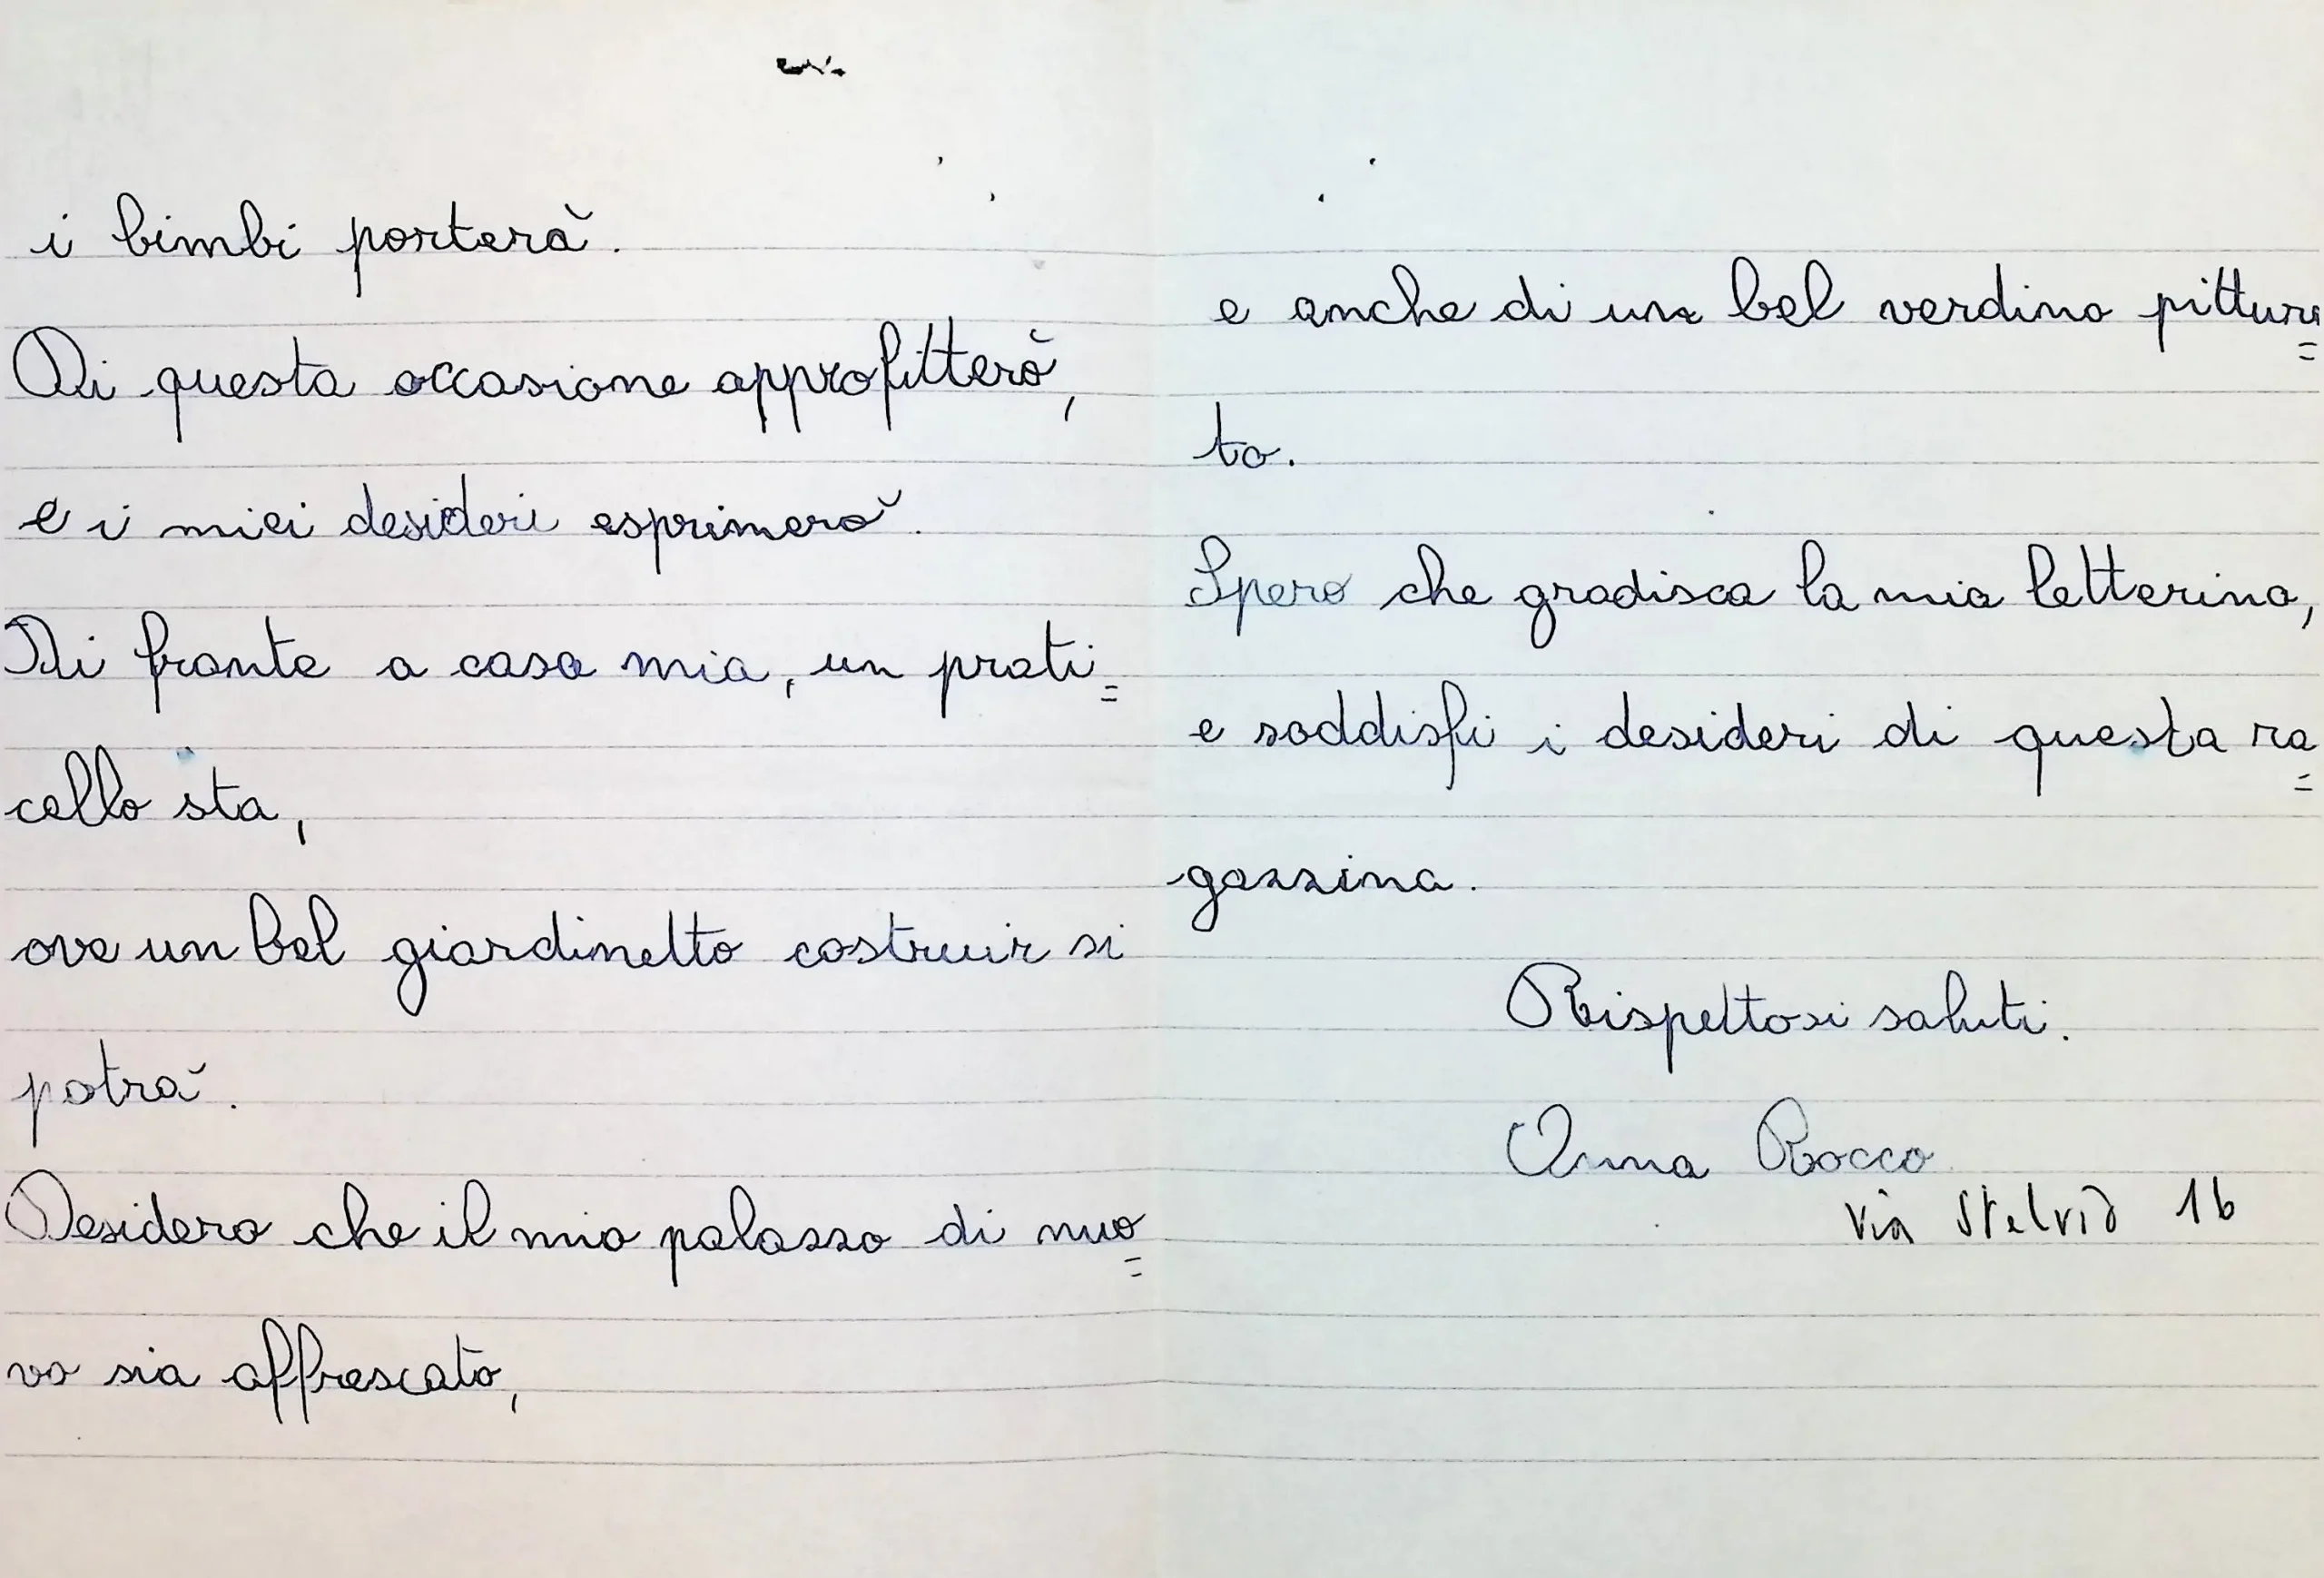 i bimbi porterà.
Di questa occasione approfitterò,
e i miei desideri esprimerò.
Di fronte a casa mia, un prati=
cello sta,
ove un bel giardinetto costruir si
potrà.
Desidero che il mio palazzo di nuo=
vo sia affrescato,
e anche di un bel verdino pittura=
to.
Spero che gradisca la mia letterina,
e soddisfi i desideri di questa ra=
gazzina.
Rispettosi saluti.
Anna Rocco
Via Stelvio 16